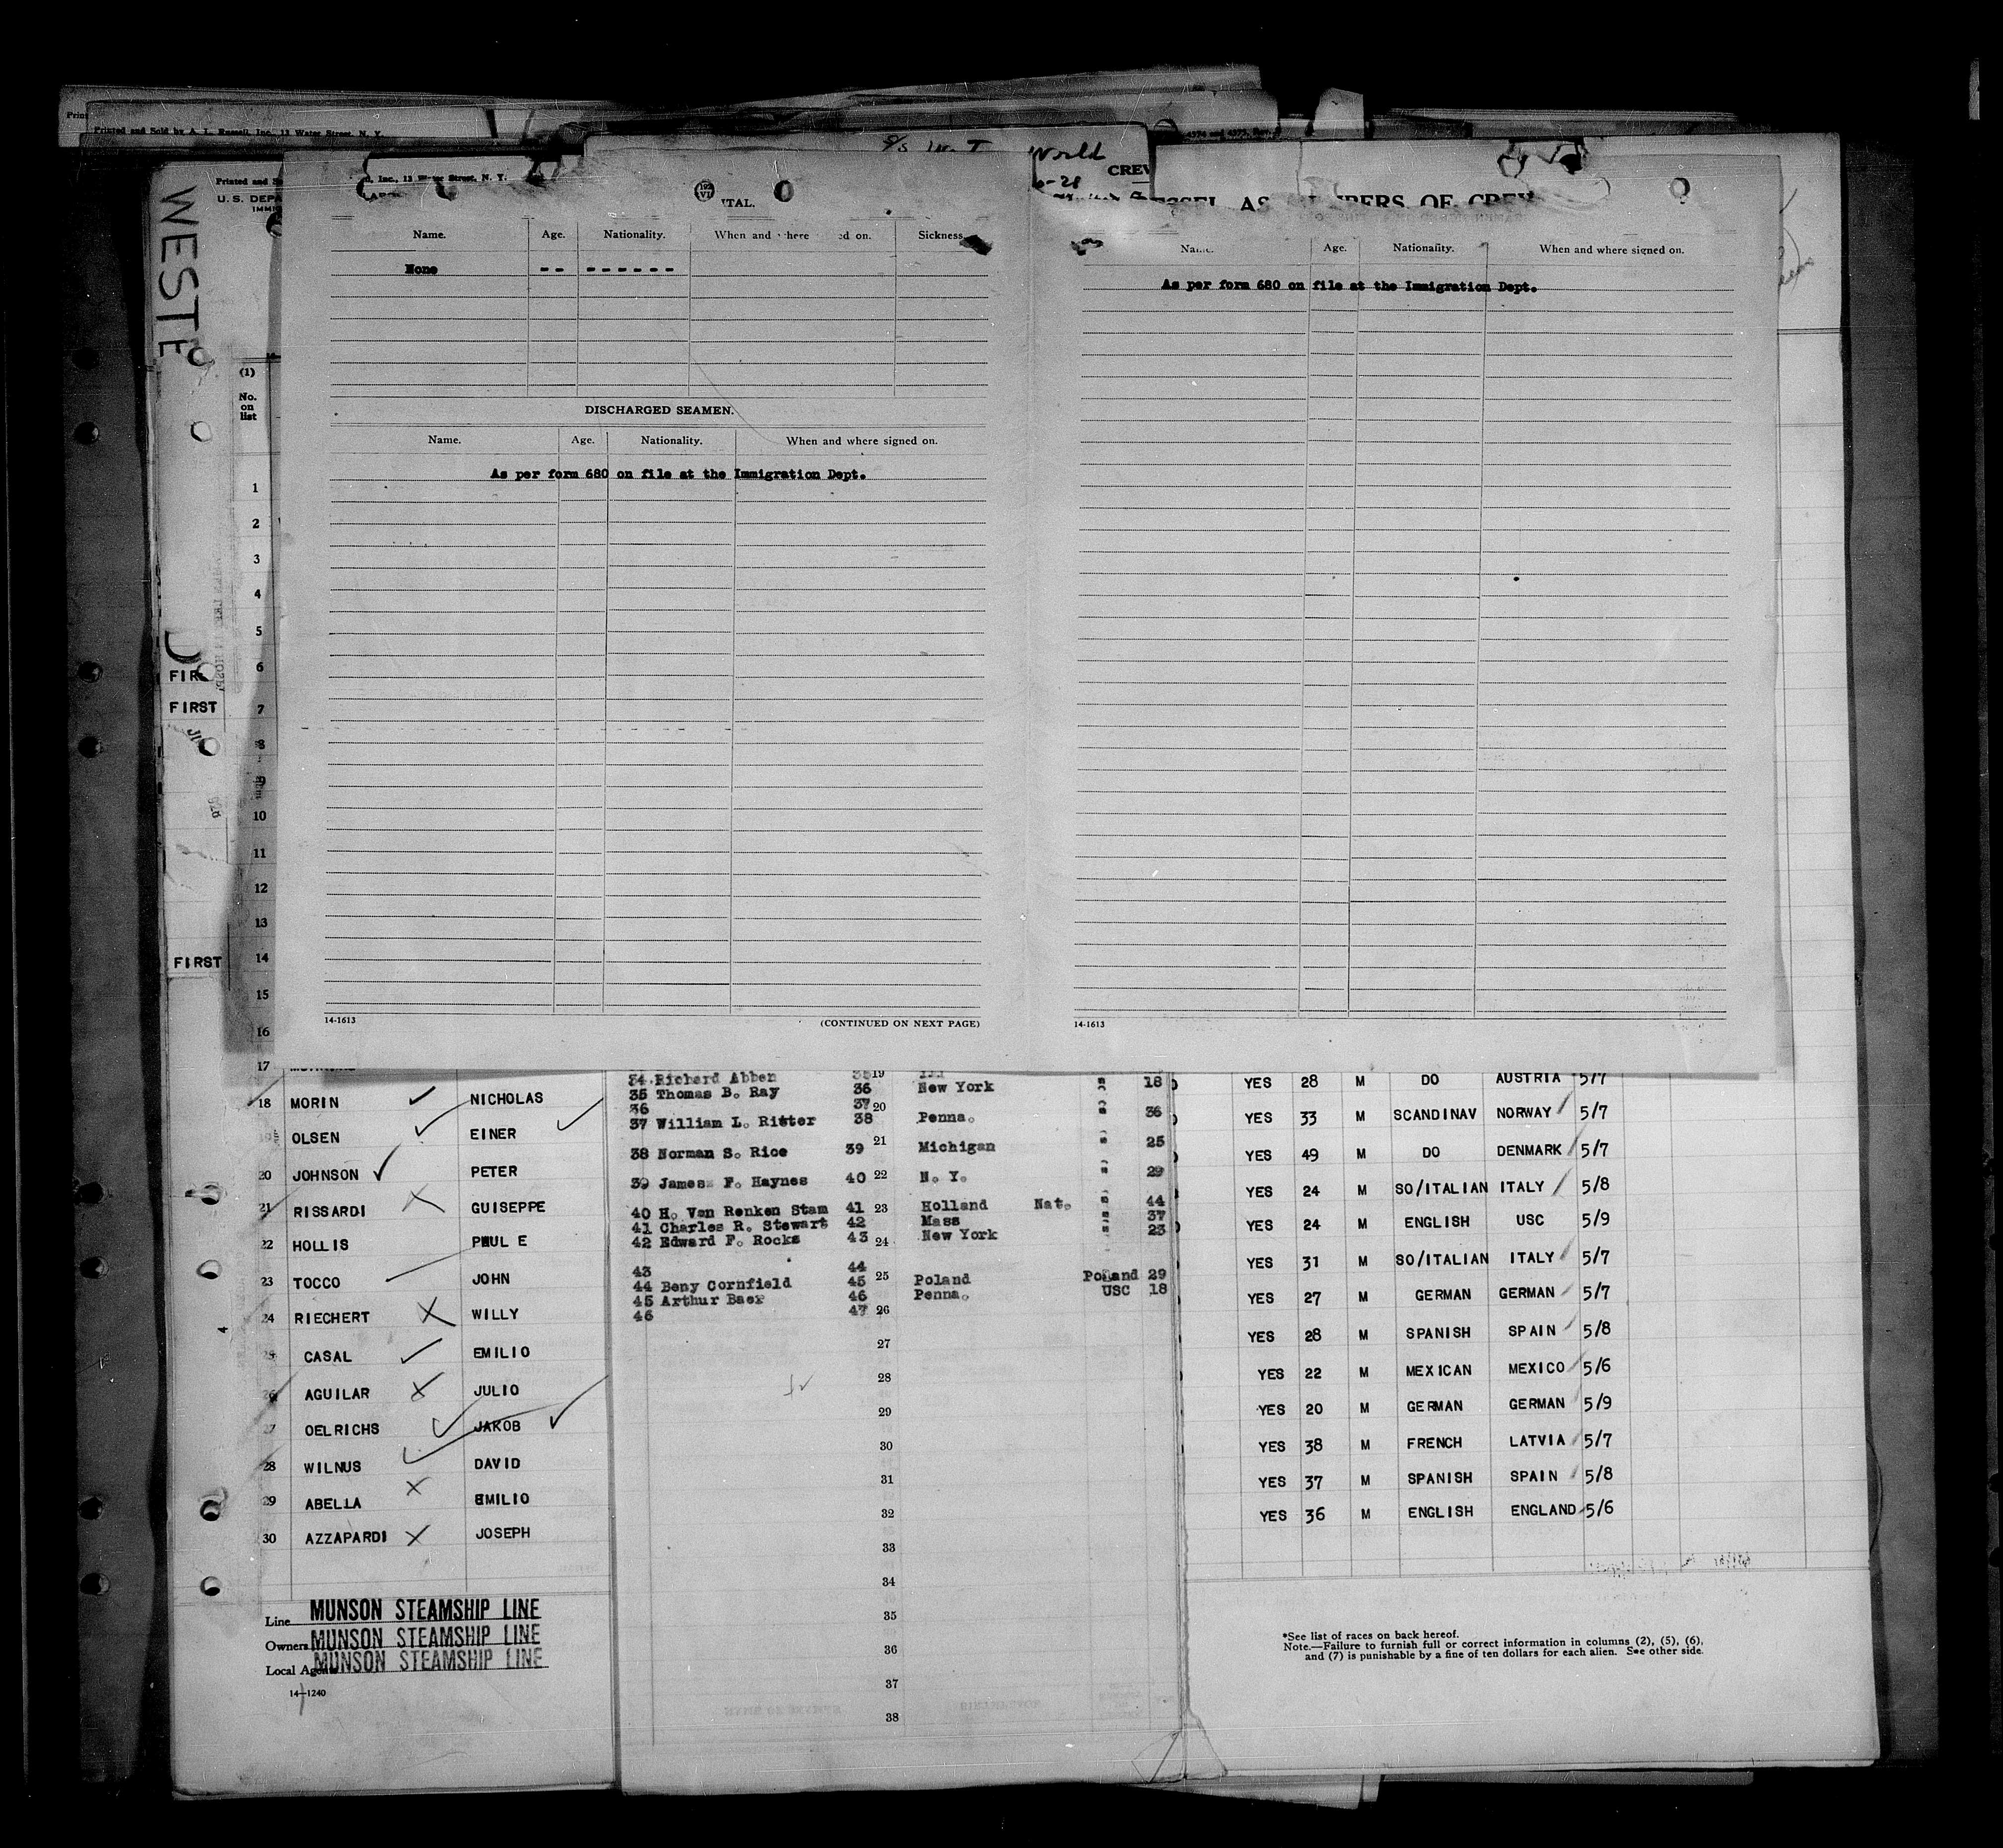 Printed and Sold by A. L. Russell, Inc., 12 Water Street, N. Y.
WESTE
Printed and
U. S. DEPA
IMMI
Inc., 12 Water Street, N. Y.
S/S
World
CREW
ITAL.
Name. Age. Nationality. When and where ed on. Sickness
None -- ------
DISCHARGED SEAMEN.
Name. Age. Nationality. When and where signed on.
As per form 680 on file at the Immigration Dept.
14-1613 (CONTINUED ON NEXT PAGE)
OF CREW
Name. Age. Nationality. When and where signed on.
As per form 680 on file at the Immigration Dept.
14-1613
(1)
No.
on
list
1
2
3
4
5
6
FIRST
7
8
9
10
11
12
13
FIRST
14
15
16
17
18 MORIN NICHOLAS
OLSEN EINER
20 JOHNSON PETER
21 RISSARDI GUISEPPE
22 HOLLIS PAUL E
23 TOCCO JOHN
24 RIECHERT WILLY
CASAL EMILIO
26 AGUILAR JULIO
27 OELRICHS JAKOB
28 WILNUS DAVID
29 ABELLA EMILIO
30 AZZAPARDI JOSEPH
Line MUNSON STEAMSHIP LINE
Owners MUNSON STEAMSHIP LINE
Local Agents MUNSON STEAMSHIP LINE
14-1240
34 Richard Abben 19 18
35 Thomas B. Ray 36 New York
36 37 20 36
37 William L. Ritter 38 Penna.
38 Norman S. Rice 39 21 Michigan 25
39 James F. Haynes 40 22 N. Y. 29
40 H. Van Renken Stam 41 23 Holland Nat. 44
41 Charles R. Stewart 42 Mass 37
42 Edward F. Rocks 43 24 New York 23
43 44
44 Beny Cornfield 45 25 Poland Poland 29
45 Arthur Baer 46 Penna. USC 18
46 47 26
27
28
29
30
31
32
33
34
35
36
37
38
YES 28 M DO AUSTRIA 5/7
YES 33 M SCANDINAV NORWAY 5/7
YES 49 M DO DENMARK 5/7
YES 24 M SO/ITALIAN ITALY 5/8
YES 24 M ENGLISH USC 5/9
YES 31 M SO/ITALIAN ITALY 5/7
YES 27 M GERMAN GERMAN 5/7
YES 28 M SPANISH SPAIN 5/8
YES 22 M MEXICAN MEXICO 5/6
YES 20 M GERMAN GERMAN 5/9
YES 38 M FRENCH LATVIA 5/7
YES 37 M SPANISH SPAIN 5/8
YES 36 M ENGLISH ENGLAND 5/6
*See list of races on back hereof.
Note.—Failure to furnish full or correct information in columns (2), (5), (6),
and (7) is punishable by a fine of ten dollars for each alien. See other side.